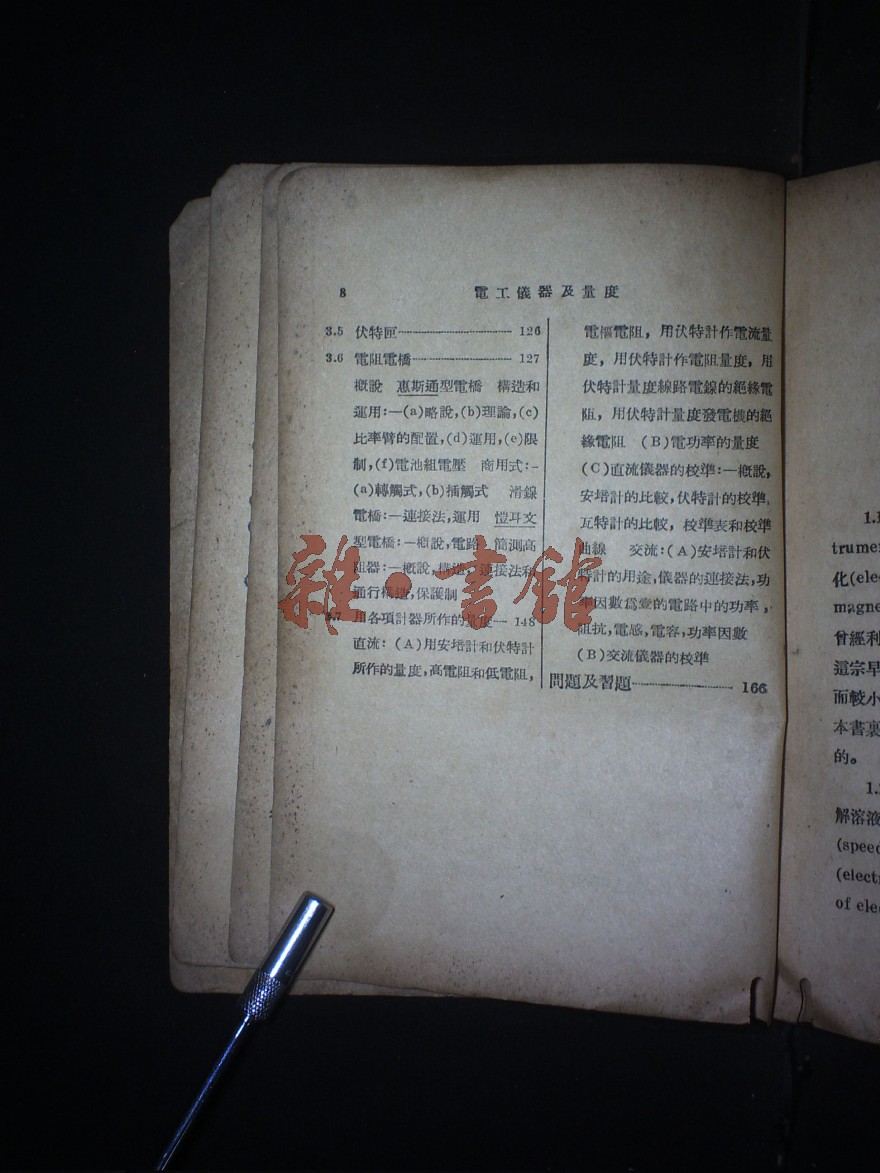 8 電工儀器及量度
3.5 伏特匣 126
3.6 電阻電橋 127
概說 惠斯通型電橋 構造和
運用:—(a)略說,(b)理論,(c)
比率臂的配置,(d)運用,(e)限
制,(f)電池組電壓 商用式:-
(a)轉觸式,(b)插觸式 滑線
電橋:—連接法,運用 愷耳文
型電橋:—概說,電路 簡測高
阻器:—概說,構造,連接法和
通行構造,保護制
3.7 用各項計器所作的量度 148
直流: (A)用安培計和伏特計
所作的量度,高電阻和低電阻,
電樞電阻, 用伏特計作電流量
度, 用伏特計作電阻量度, 用
伏特計量度線路電線的絕緣電
阻, 用伏特計量度發電機的絕
緣電阻 (B)電功率的量度
(C)直流儀器的校準:—概說,
安培計的比較,伏特計的校準,
瓦特計的比較, 校準表和校準
曲線 交流:(A)安培計和伏
特計的用途,儀器的連接法,功
率因數爲壹的電路中的功率,
阻抗,電感,電容,功率因數
(B)交流儀器的校準
問題及習題 166
雜·書館
trume
化(elec
magne
曾經利
這宗早
而較小
本書裏
的。
解溶液
(speed
(elect
of ele